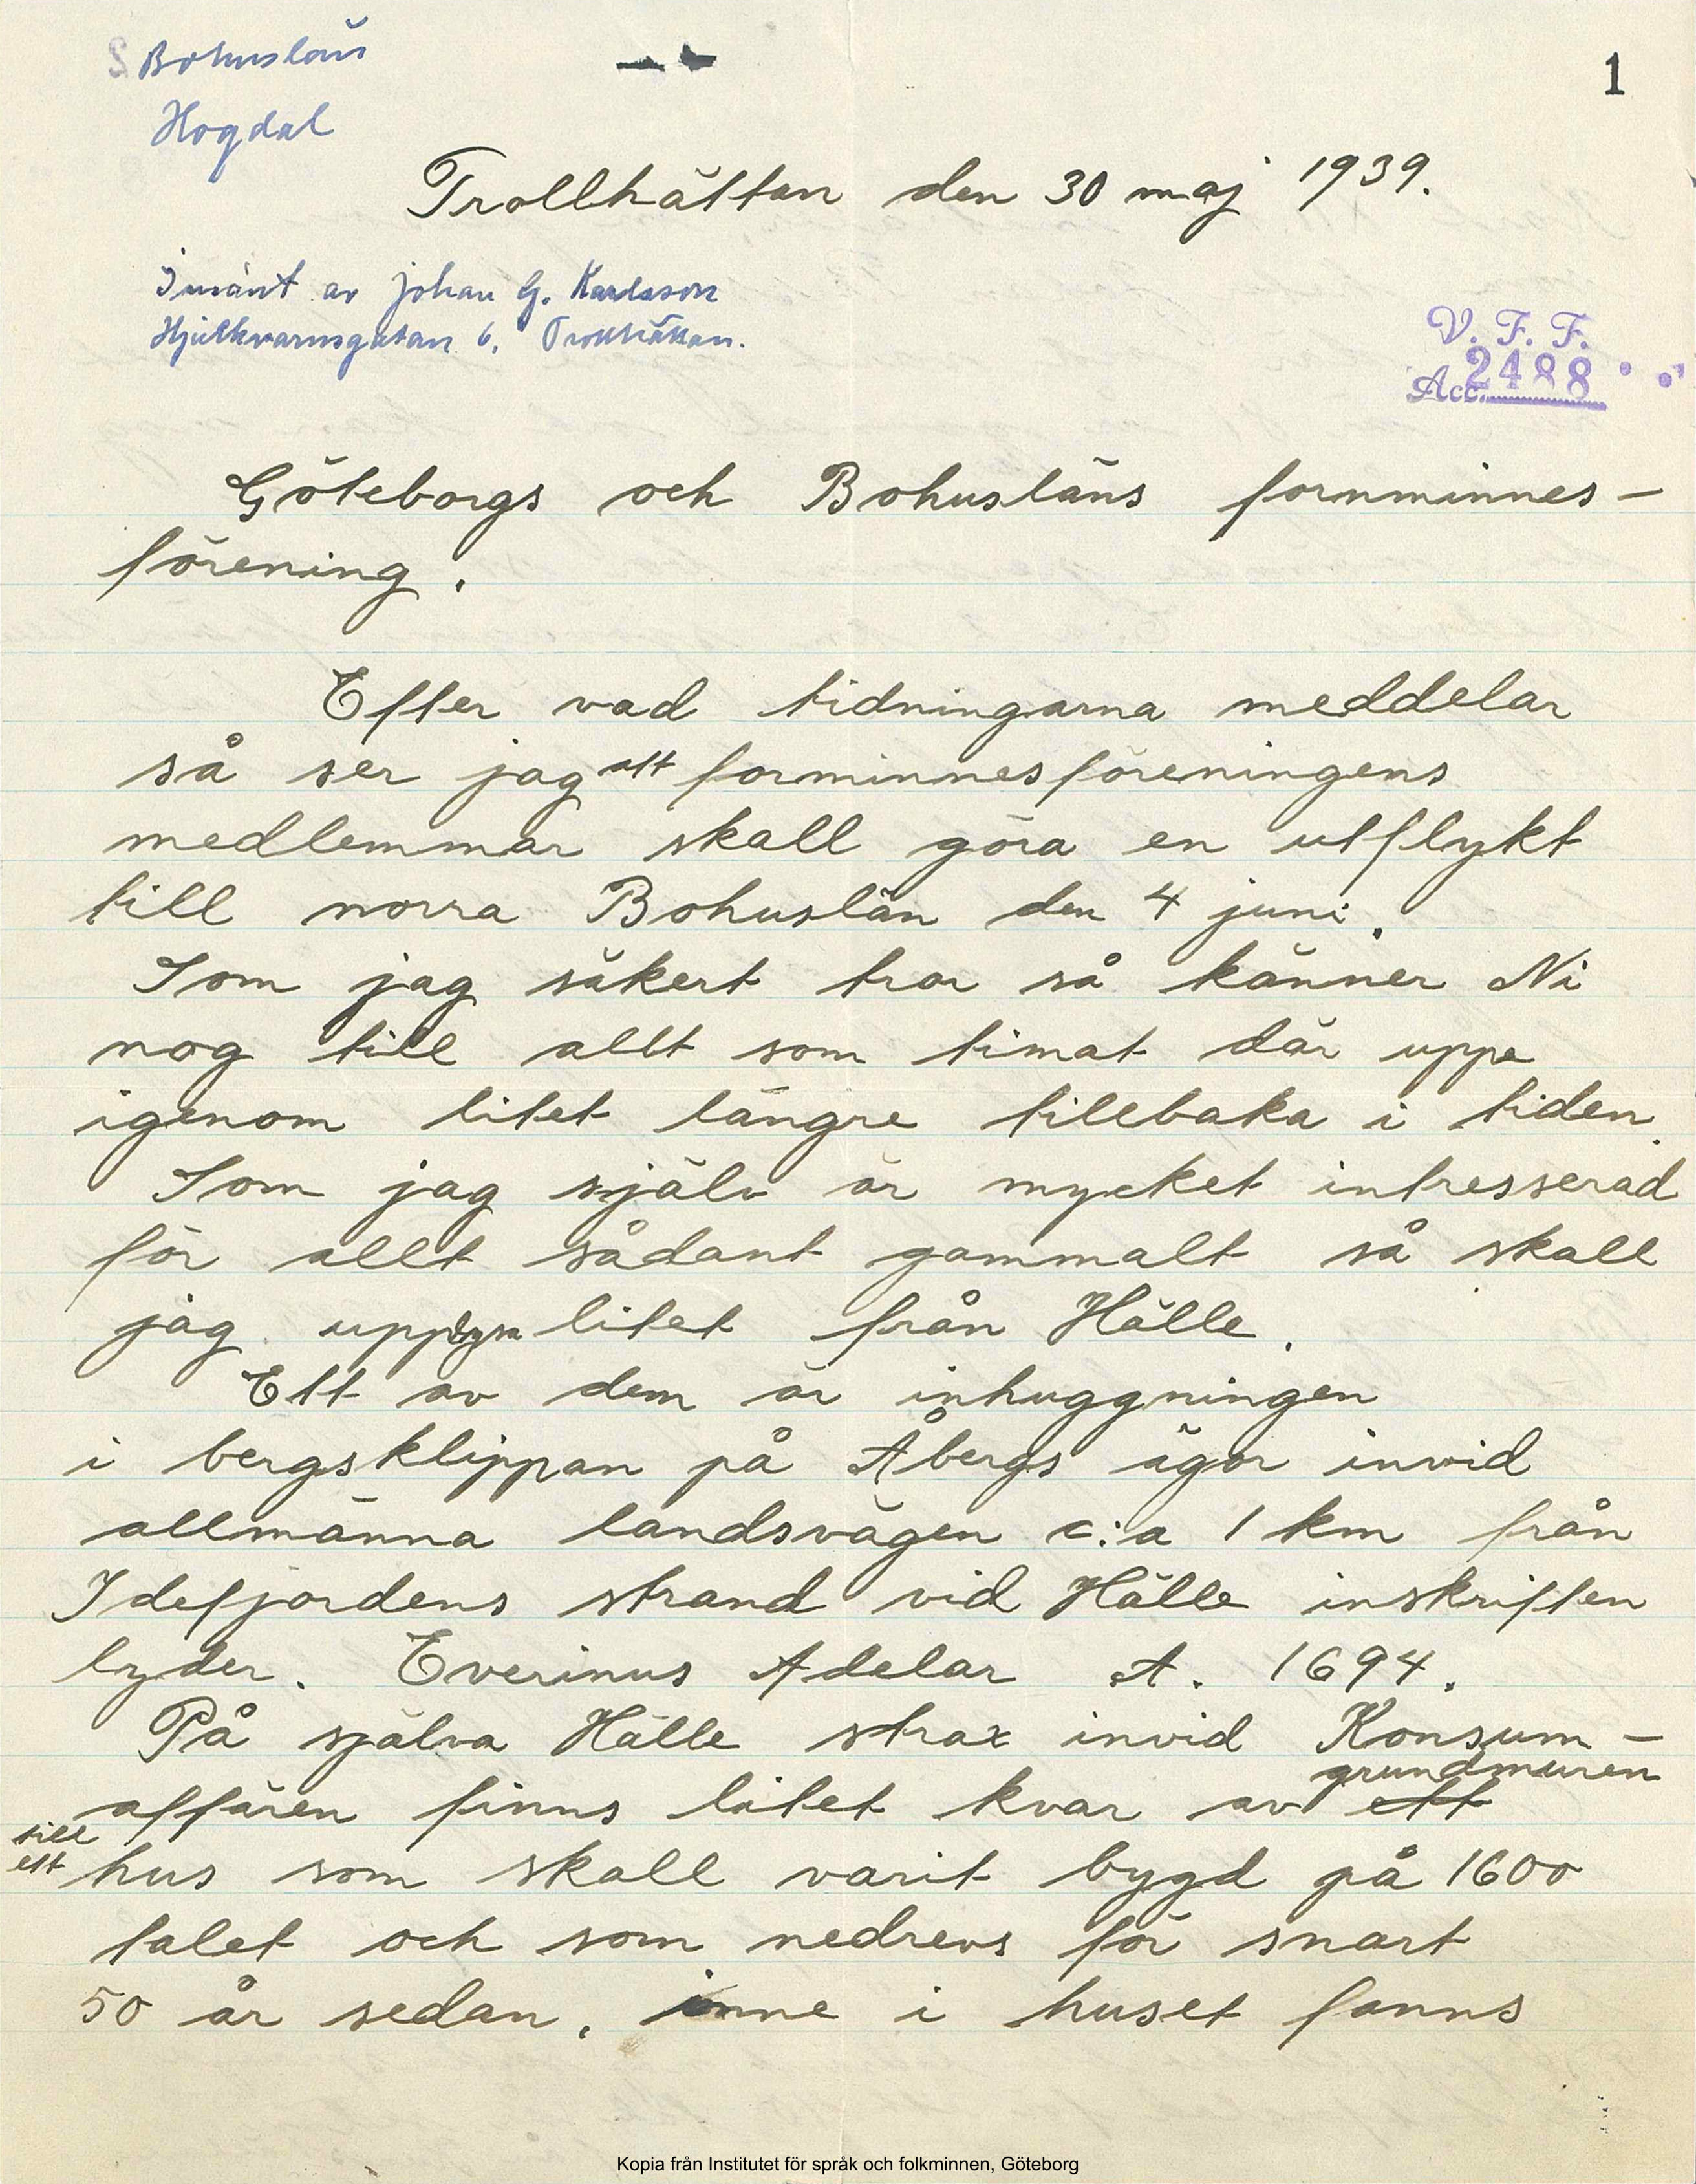 Bohuslän
1
Hogdal
Trollhättan den 30 maj 1939.
Insänt av Johan G. Karlsson
Hjulkvarnsgatan 6, Trollhättan.
V. F. F.
Acc. 2488
Göteborgs och Bohusläns fornminnes-
förening.
Efter vad tidningarna meddelar
så ser jag att forminnesföreningens
medlemmar skall göra en utflykt
till norra Bohuslän den 4 juni.
Som jag säkert tror så känner Ni
nog till allt som timat där uppe
igenom litet längre tillbaka i tiden.
Som jag själv är mycket intresserad
för allt sådant gammalt så skall
jag litet från Hälle.
Ett av dem är inhuggningen
i bergsklippan på Åbergs ägor invid
allmänna landsvägen c:a 1 km från
Idefjordens strand vid Hälle inskriften
lyder. Everinus Adelar A. 1694.
På själva Hälle strax invid Konsum-
affären finns litet kvar av ett grundmuren
till ett hus som skall varit bygd på 1600
talet och som nedrevs för snart
50 år sedan, inne i huset fanns
Kopia från Institutet för språk och folkminnen, Göteborg